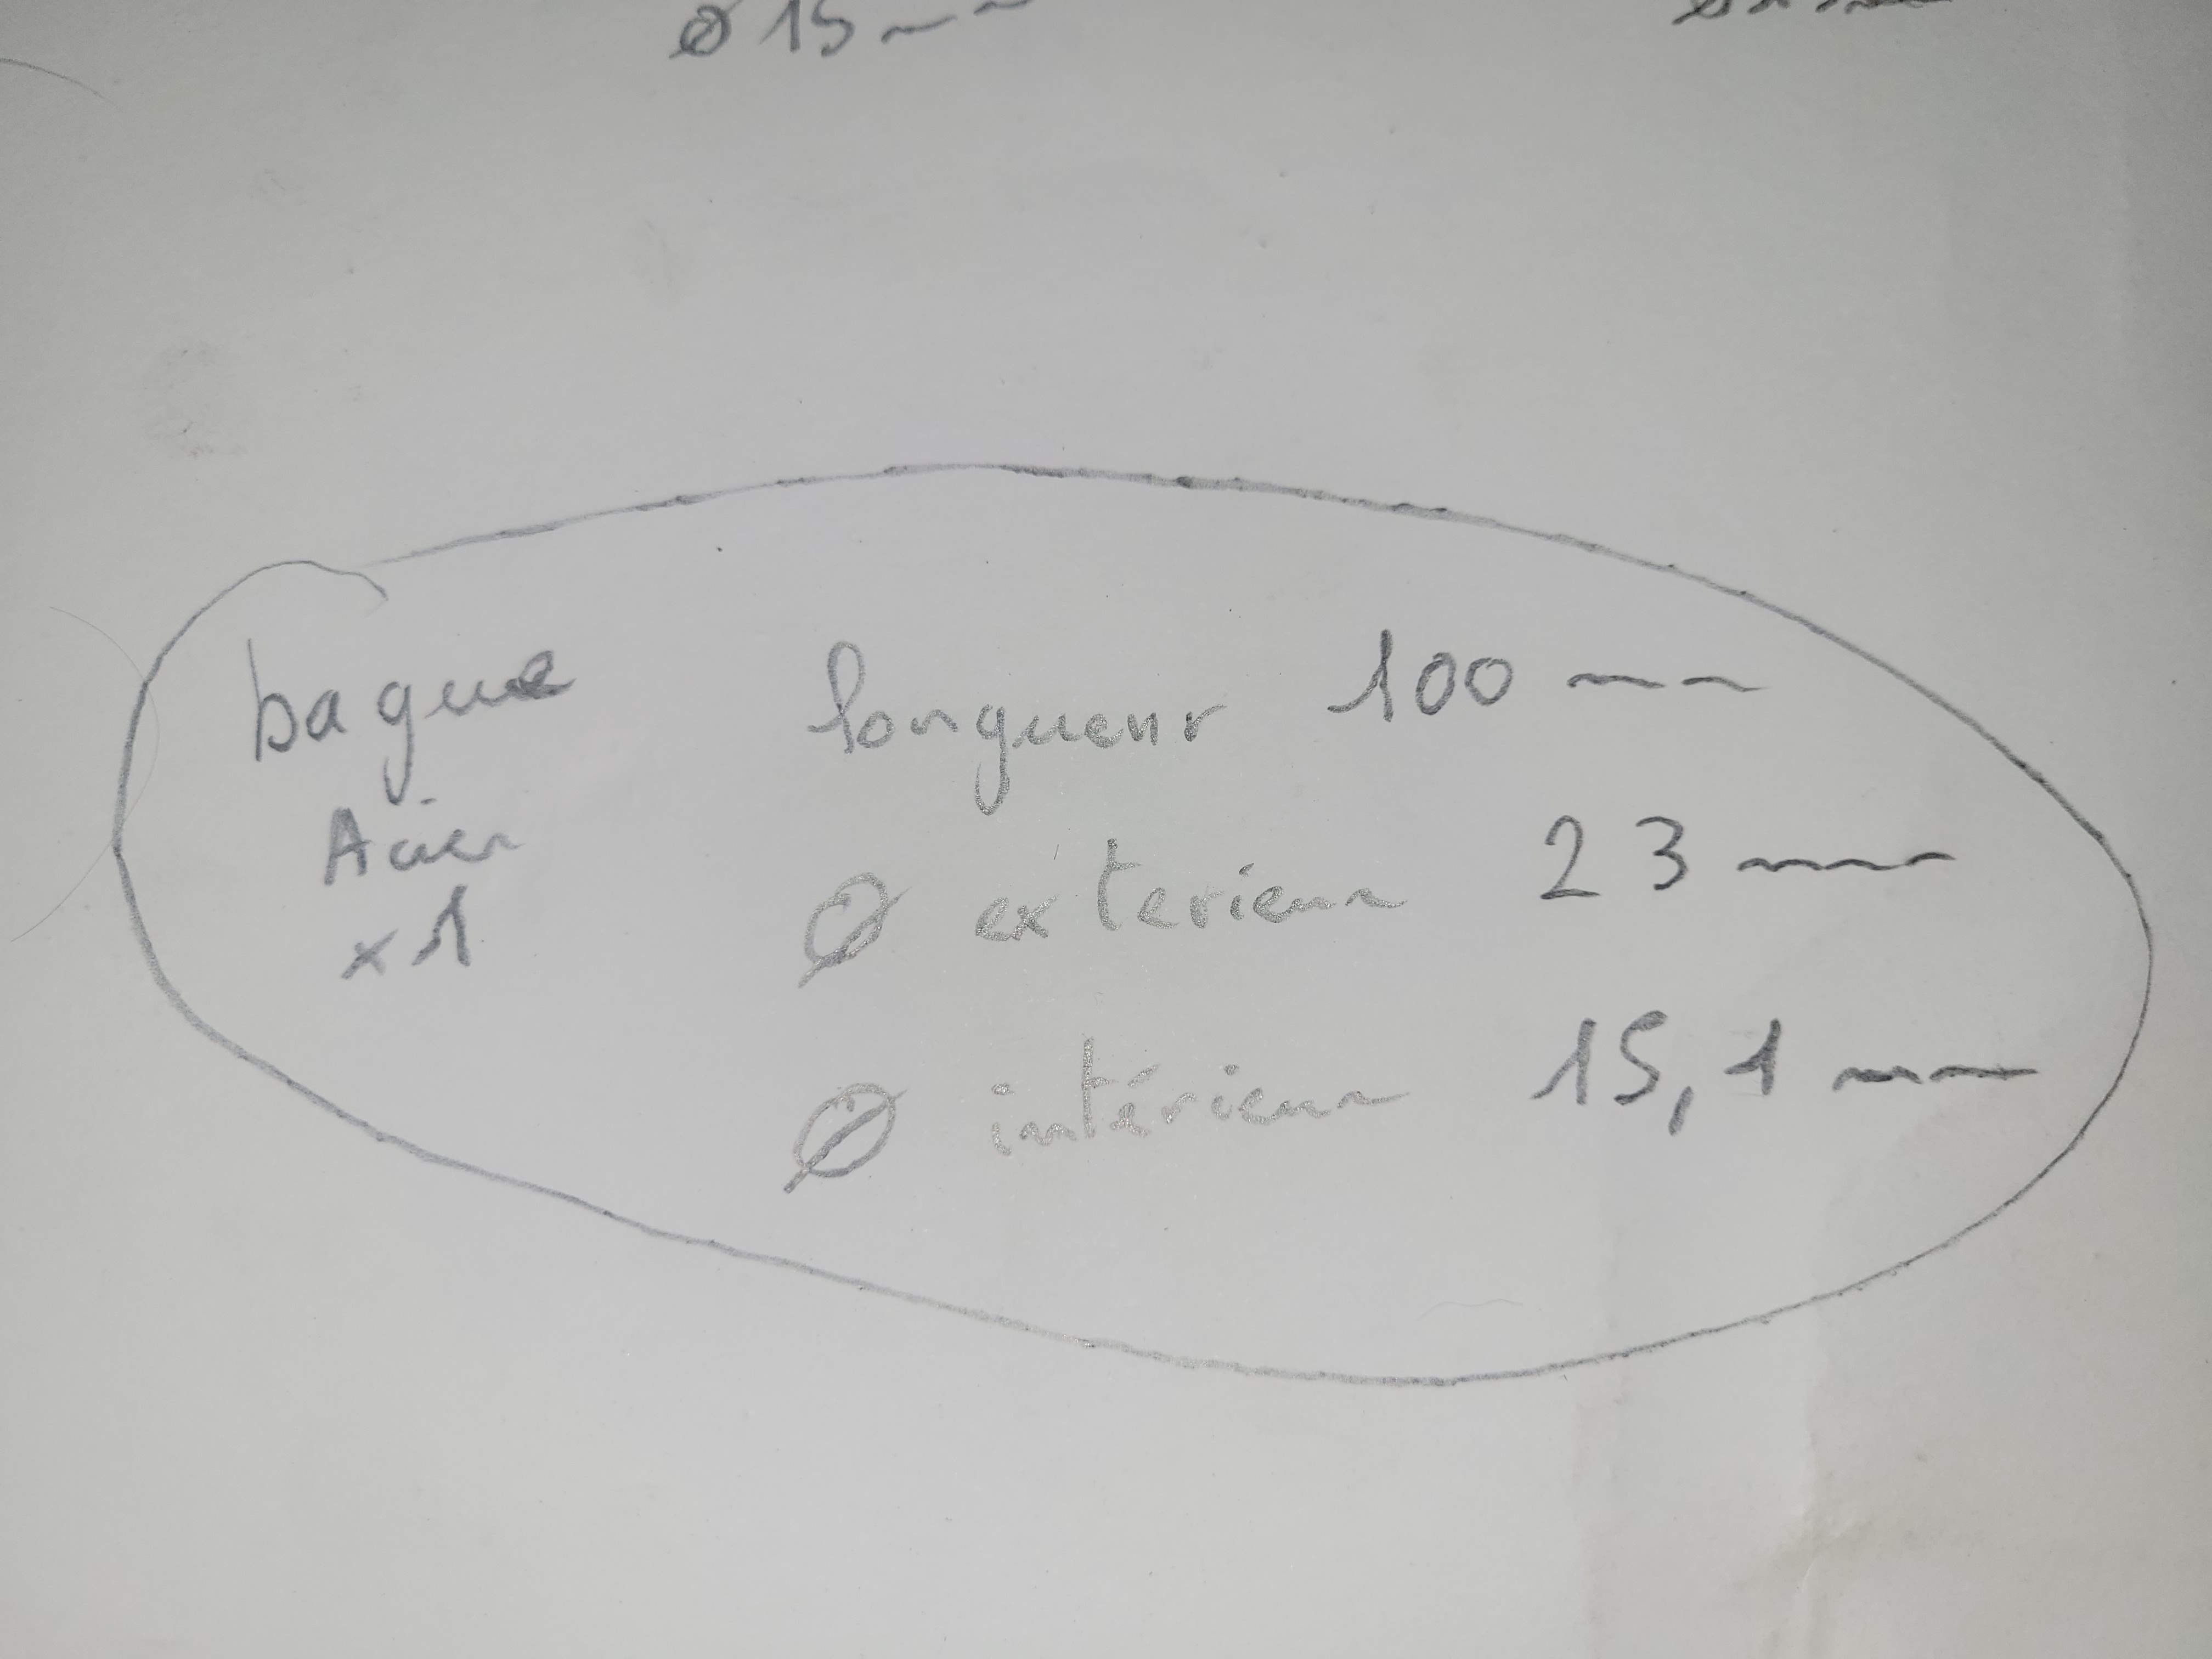 Ø 15 mm
bague longueur 100 mm
Acier Ø exterieur 23 mm
x1
Ø intérieur 15,1 mm